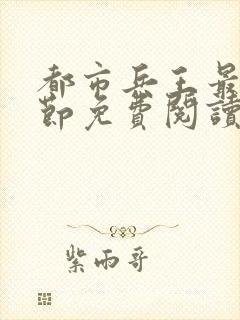 都市兵王最
節免費閱讀
紫雨哥